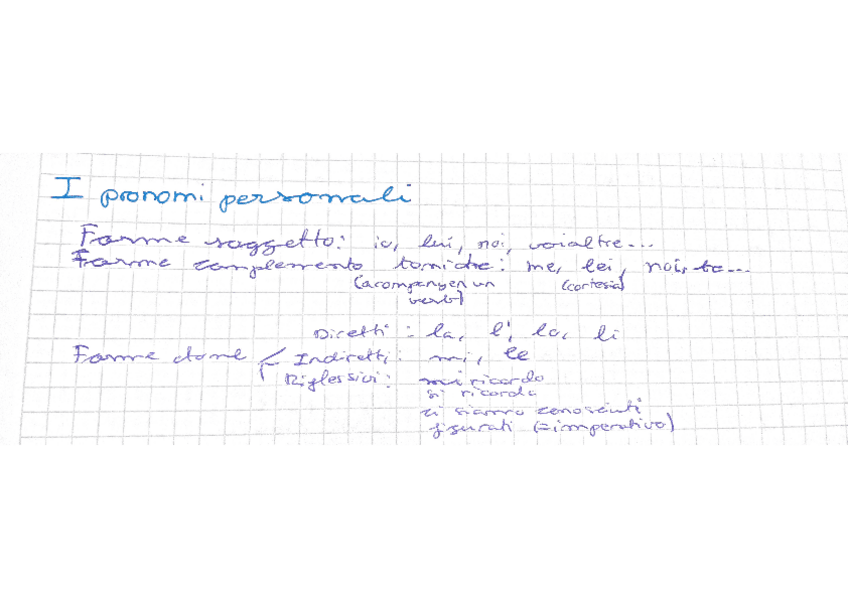 I pronomi personali
Forme soggetto: io, lui, noi, voialtre...
Forme complemento toniche: me, lei, noi, te...
(acompanyen un verb) (cortesia)
Diretti: la, l', lo, li
Forme atone Indiretti: mi, le
Riflessivi: mi ricordo
si ricorda
ci siamo conosciuti
figurati (=imperativo)